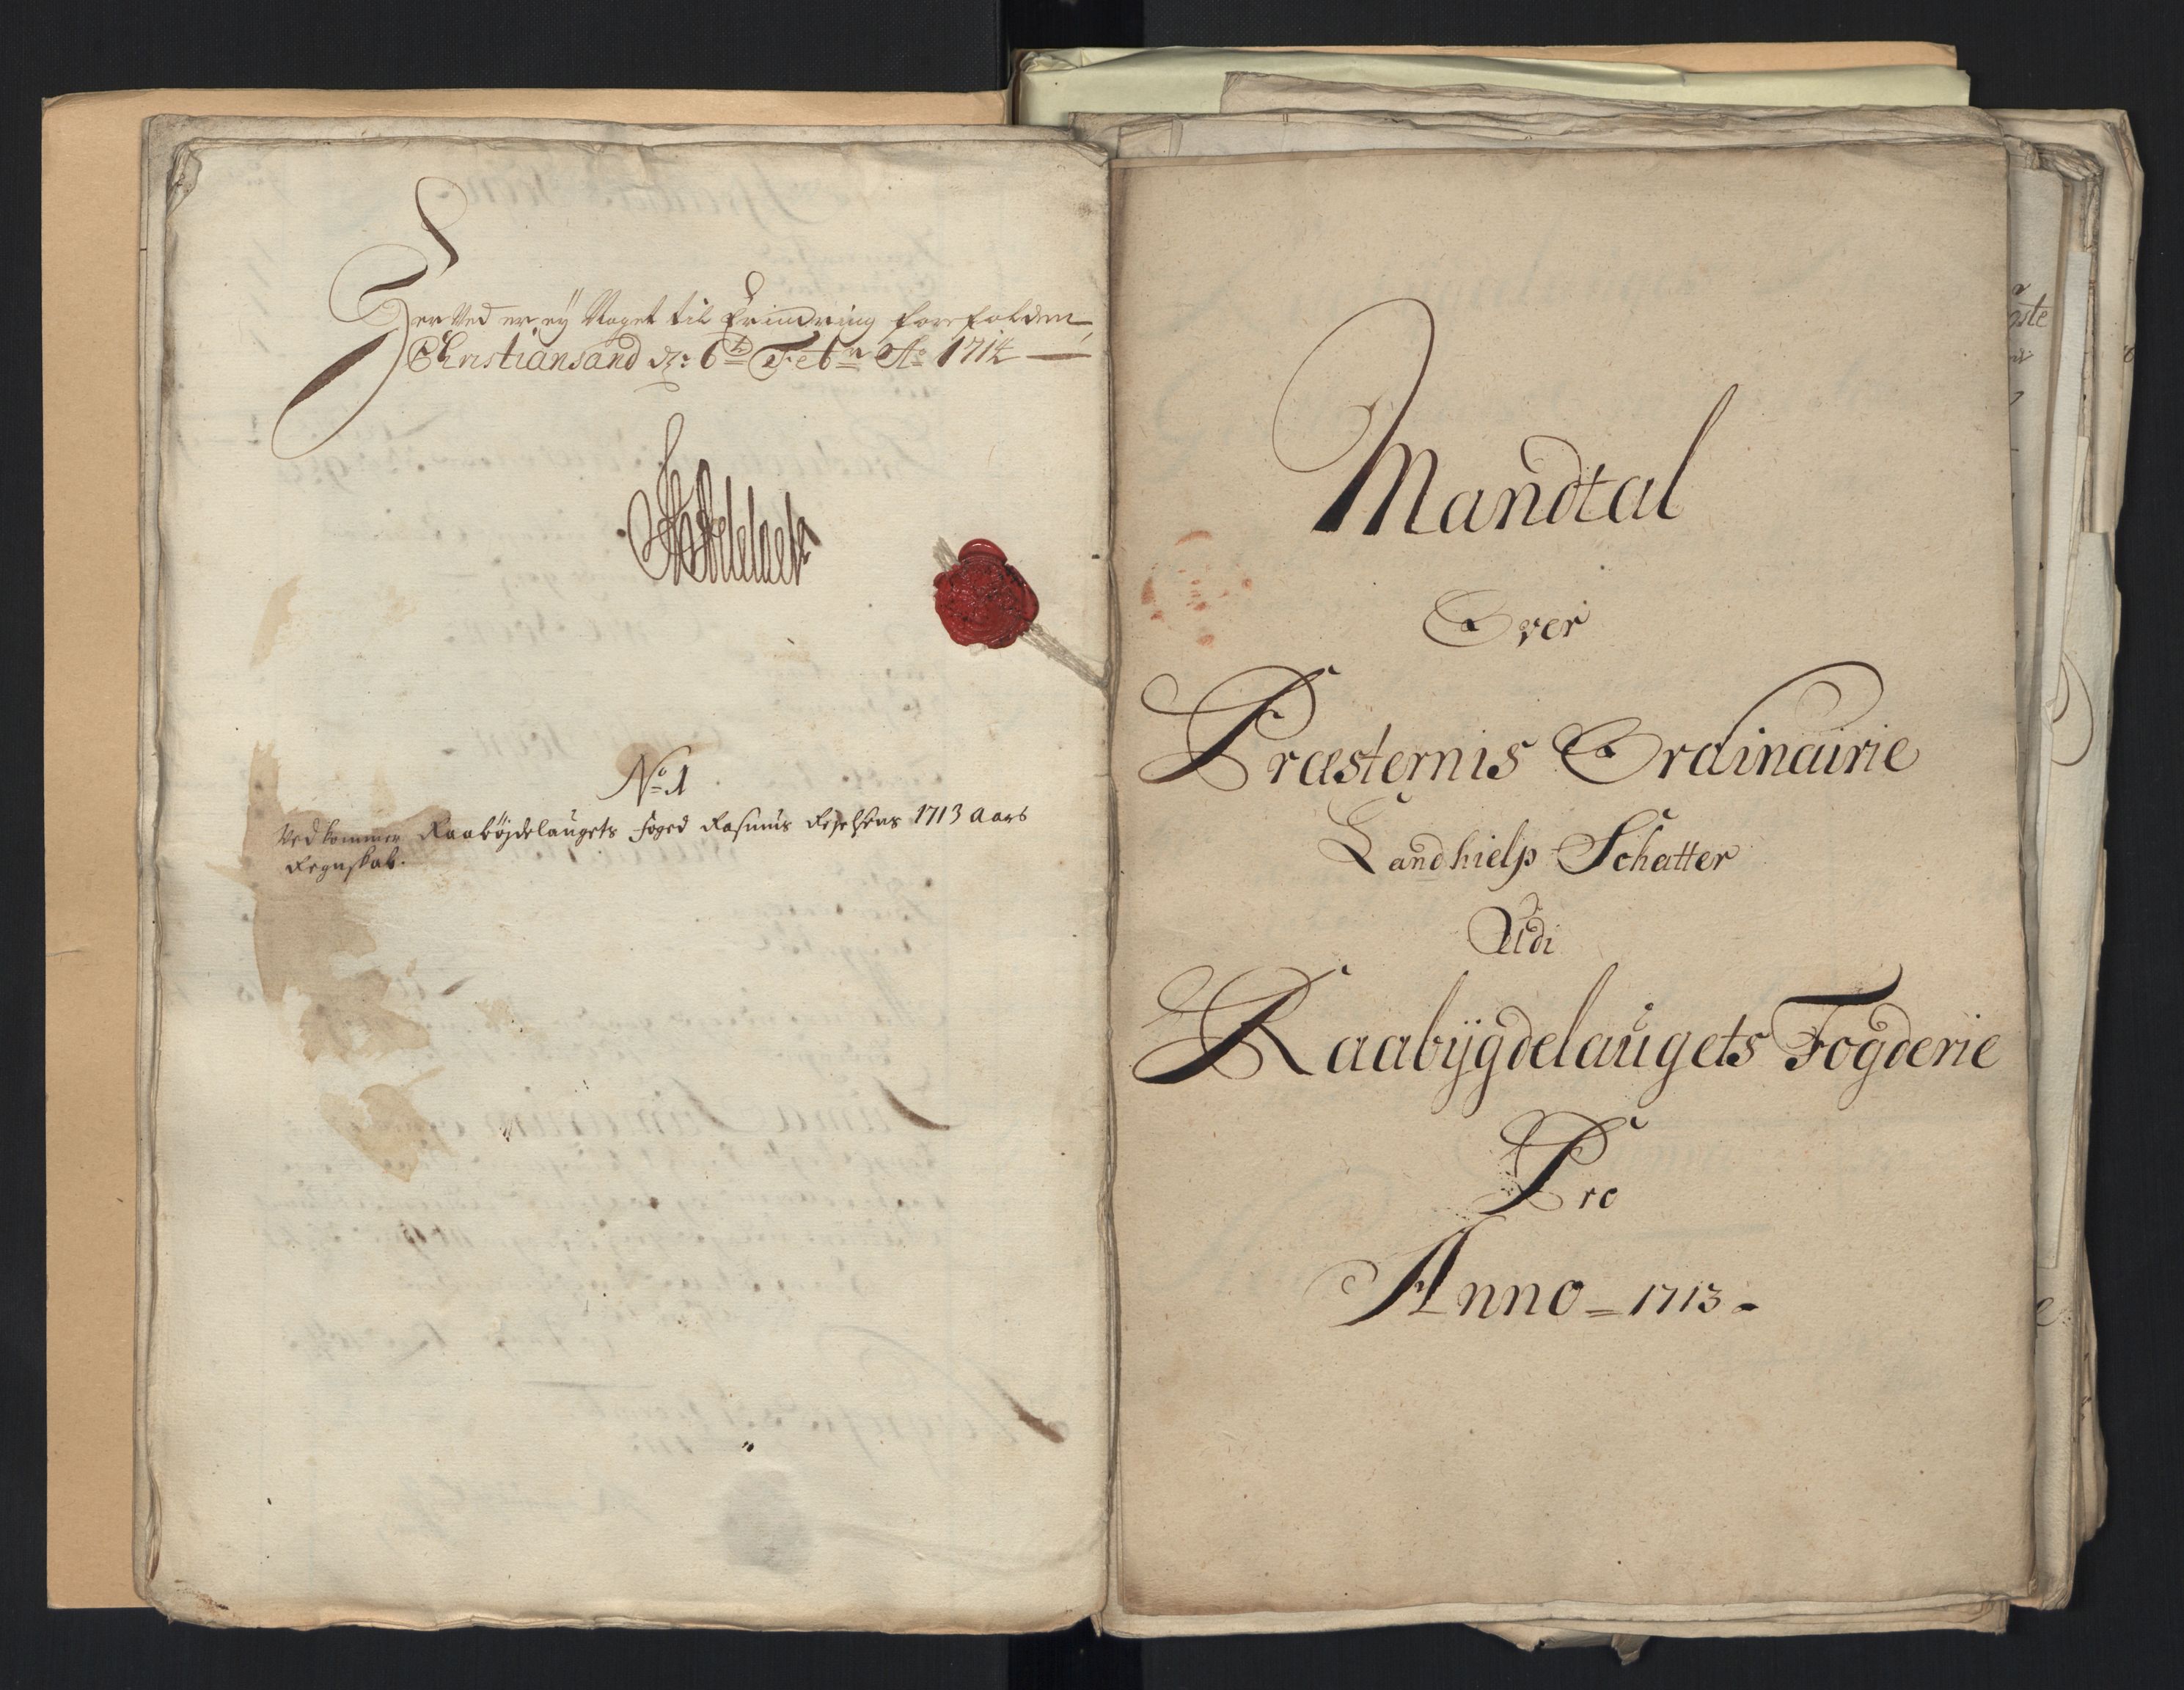 Her Ved er ey Noget til Erindring forefalden,
Christiansand d: 6te Febr Ao 1714
No 1
Vedkommer Raabøjdelaugets foged Rasmus 1713 Aars
Regnskab.
Mandtal
Over
Præsternis Ordinairie
Landhielp Schatter
Udi
Raabÿgdelaugets Fogderie
Pro
Anno 1713